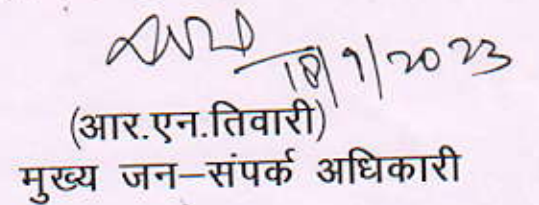 18/9/2023
(आर.एन.तिवारी)
मुख्य जन–संपर्क अधिकारी